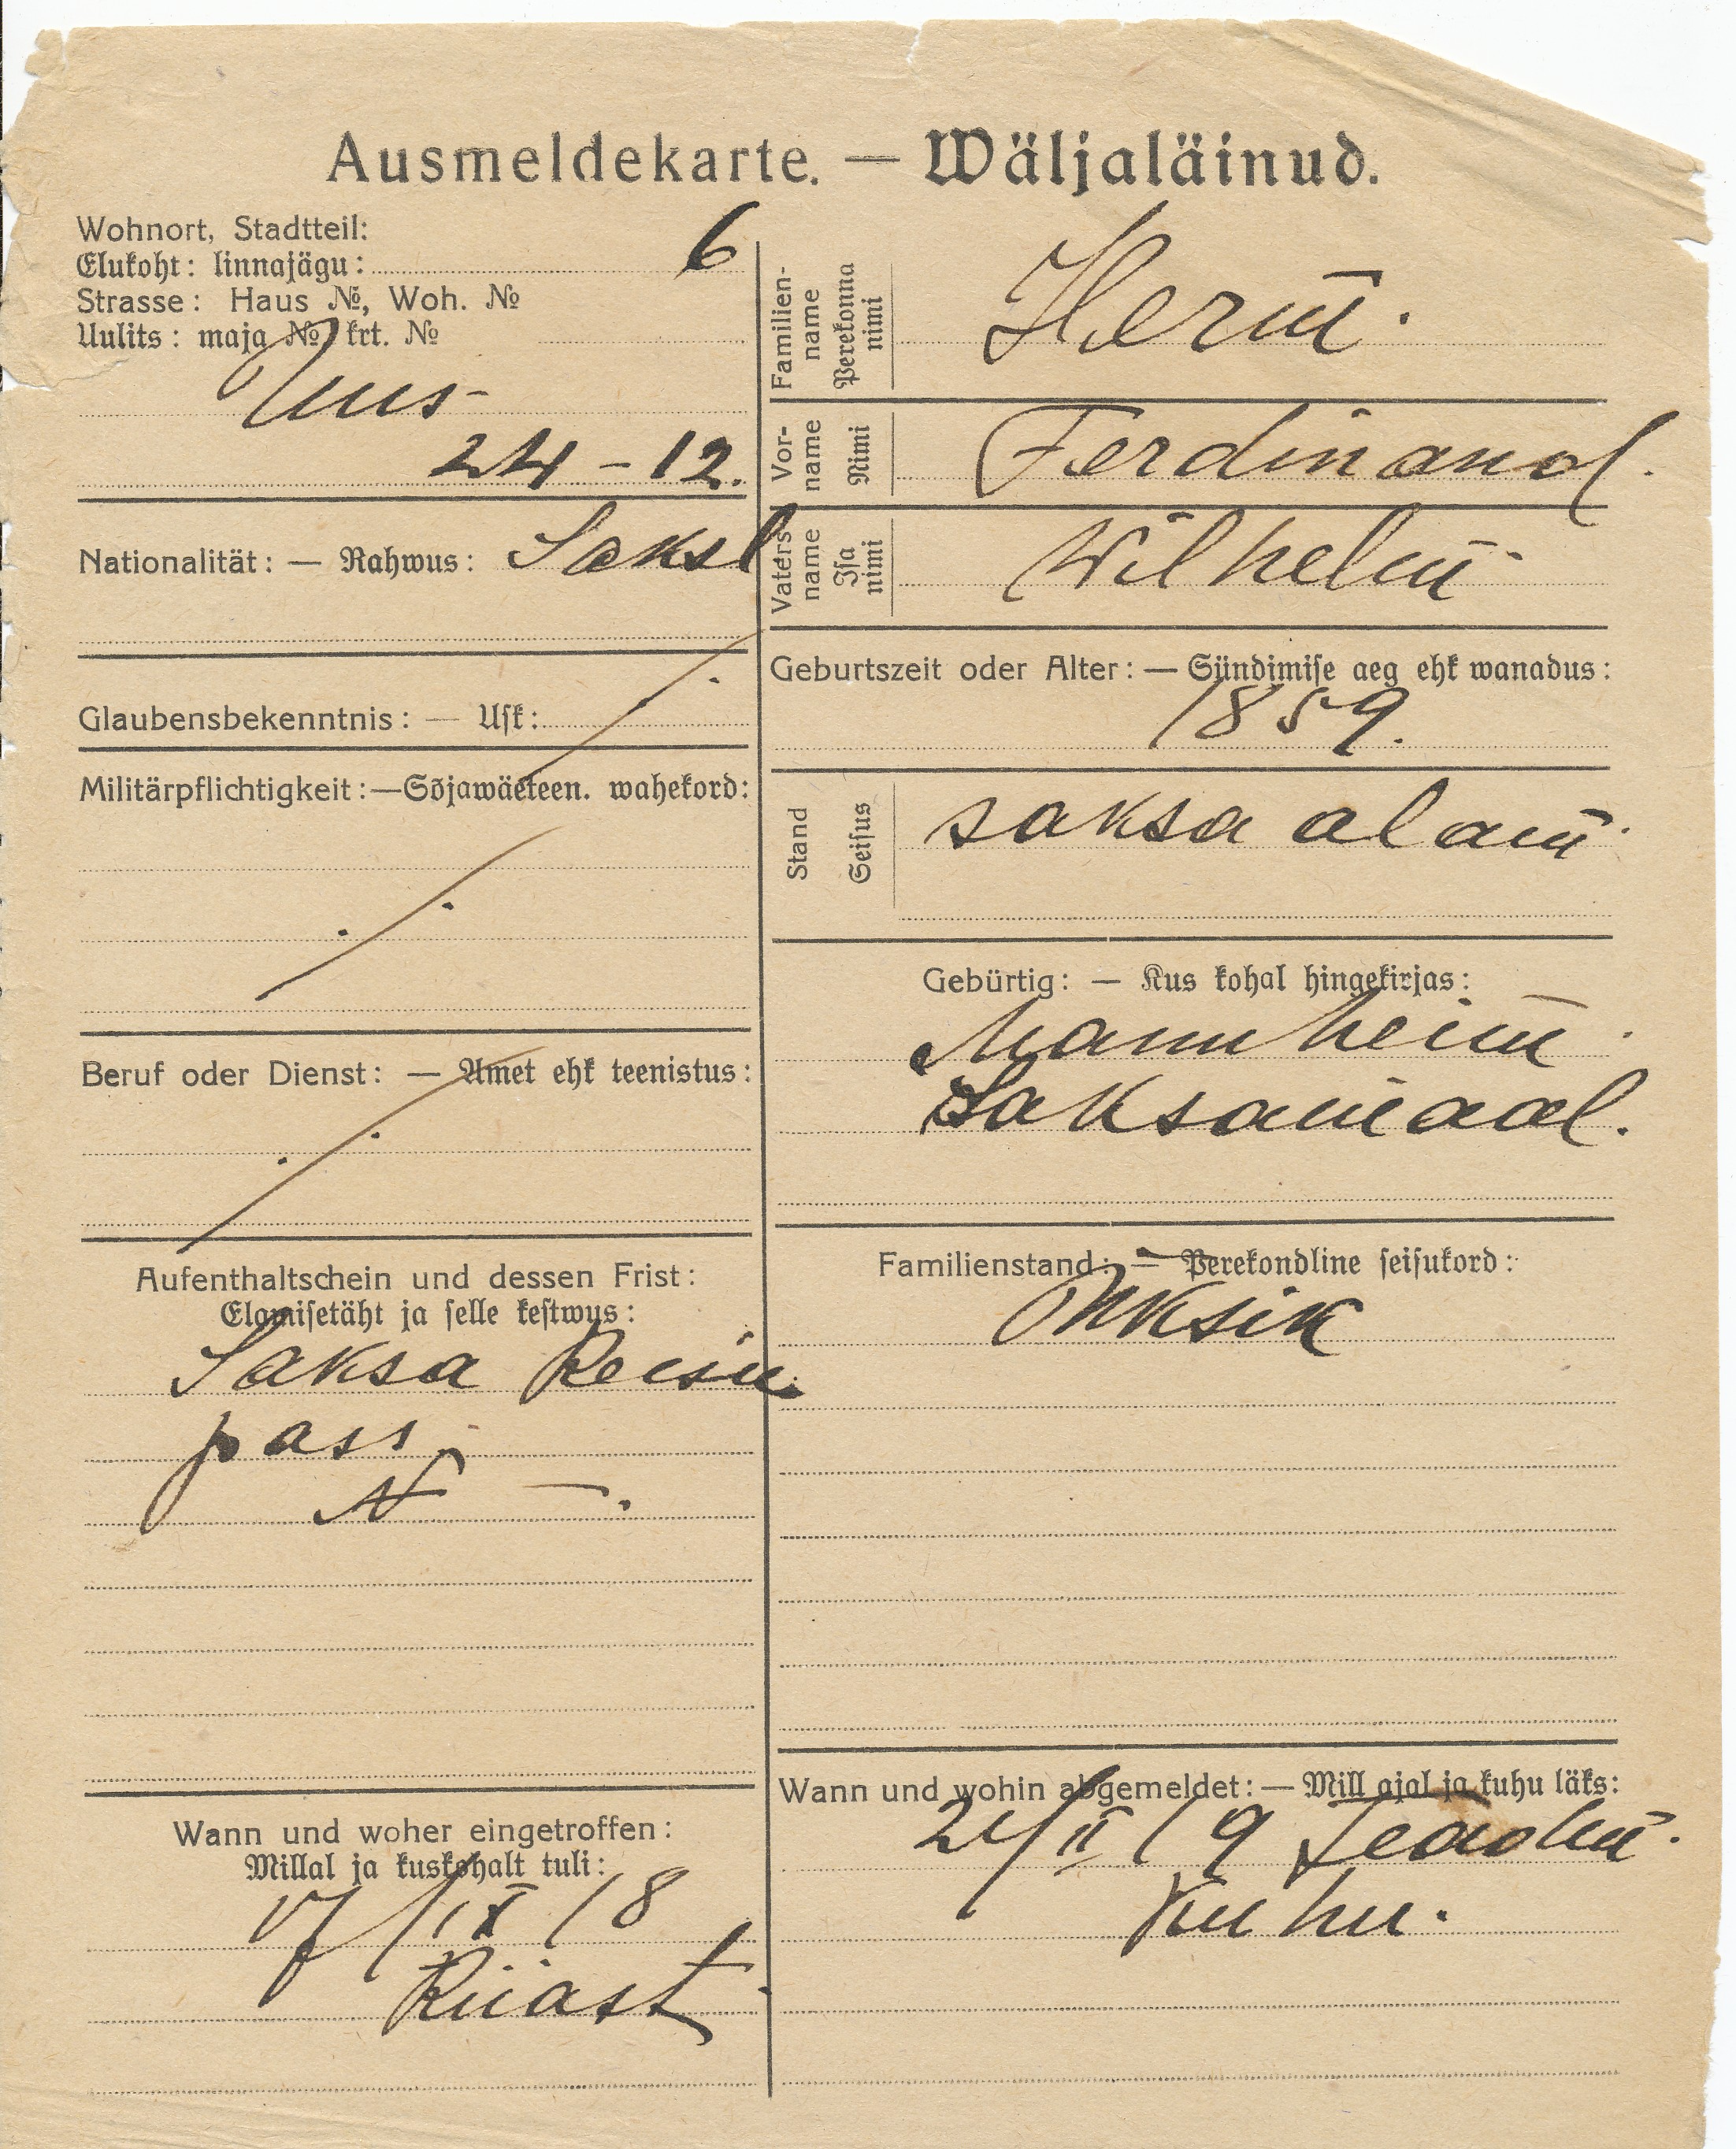 Ausmeldekarte. — Wäljaläinud.
Wohnort, Stadtteil:
Elukoht: linnajägu: 6
Strasse: Haus №, Woh. №
Uulits: maja № krt. №
Uus
24-12.
Nationalität: — Rahwus: Saksl
Glaubensbekenntnis: — Usk:
Militärpflichtigkeit:—Sõjawäeteen. wahekord:
Beruf oder Dienst: — Amet ehk teenistus:
Aufenthaltschein und dessen Frist:
Elamisetäht ja selle kestwus:
Saksa
pass
N —.
Wann und woher eingetroffen:
Millal ja kuskohalt tuli:
17/IX 18
Riiast
Familien-
name
Perekonna
nimi
Herm.
Vor-
name
Nimi
Ferdinand.
Vaters
name
Isa
nimi
Wilhelm
Geburtszeit oder Alter: — Sündimise aeg ehk wanadus:
1859.
Stand
Seisus
saksa alam.
Gebürtig: — Kus kohal hingekirjas:
Mannheim.
Saksamaal.
Familienstand: — Perekondline seisukord:
Üksik
Wann und wohin abgemeldet: — Mill ajal ja kuhu läks:
24/II 19
kuhu.